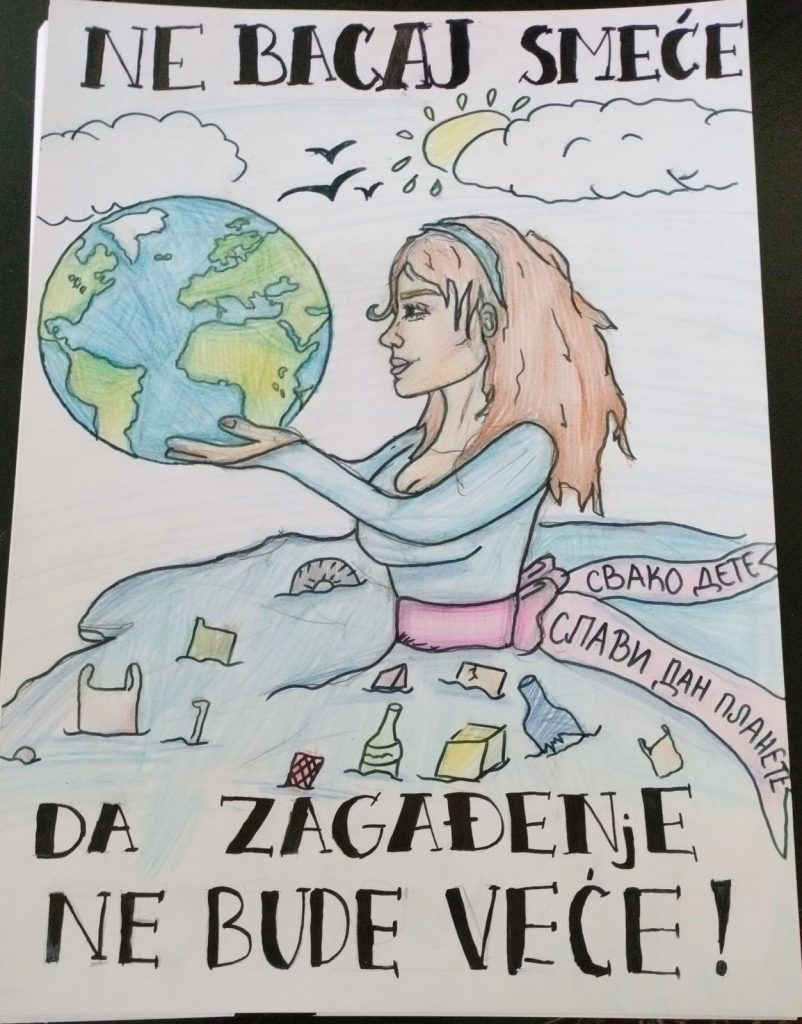 NE BACAJ SMEĆE
СВАКО ДЕТЕ
СЛАВИ ДАН ПЛАНЕТЕ
DA ZAGAĐENjE
NE BUDE VEĆE!